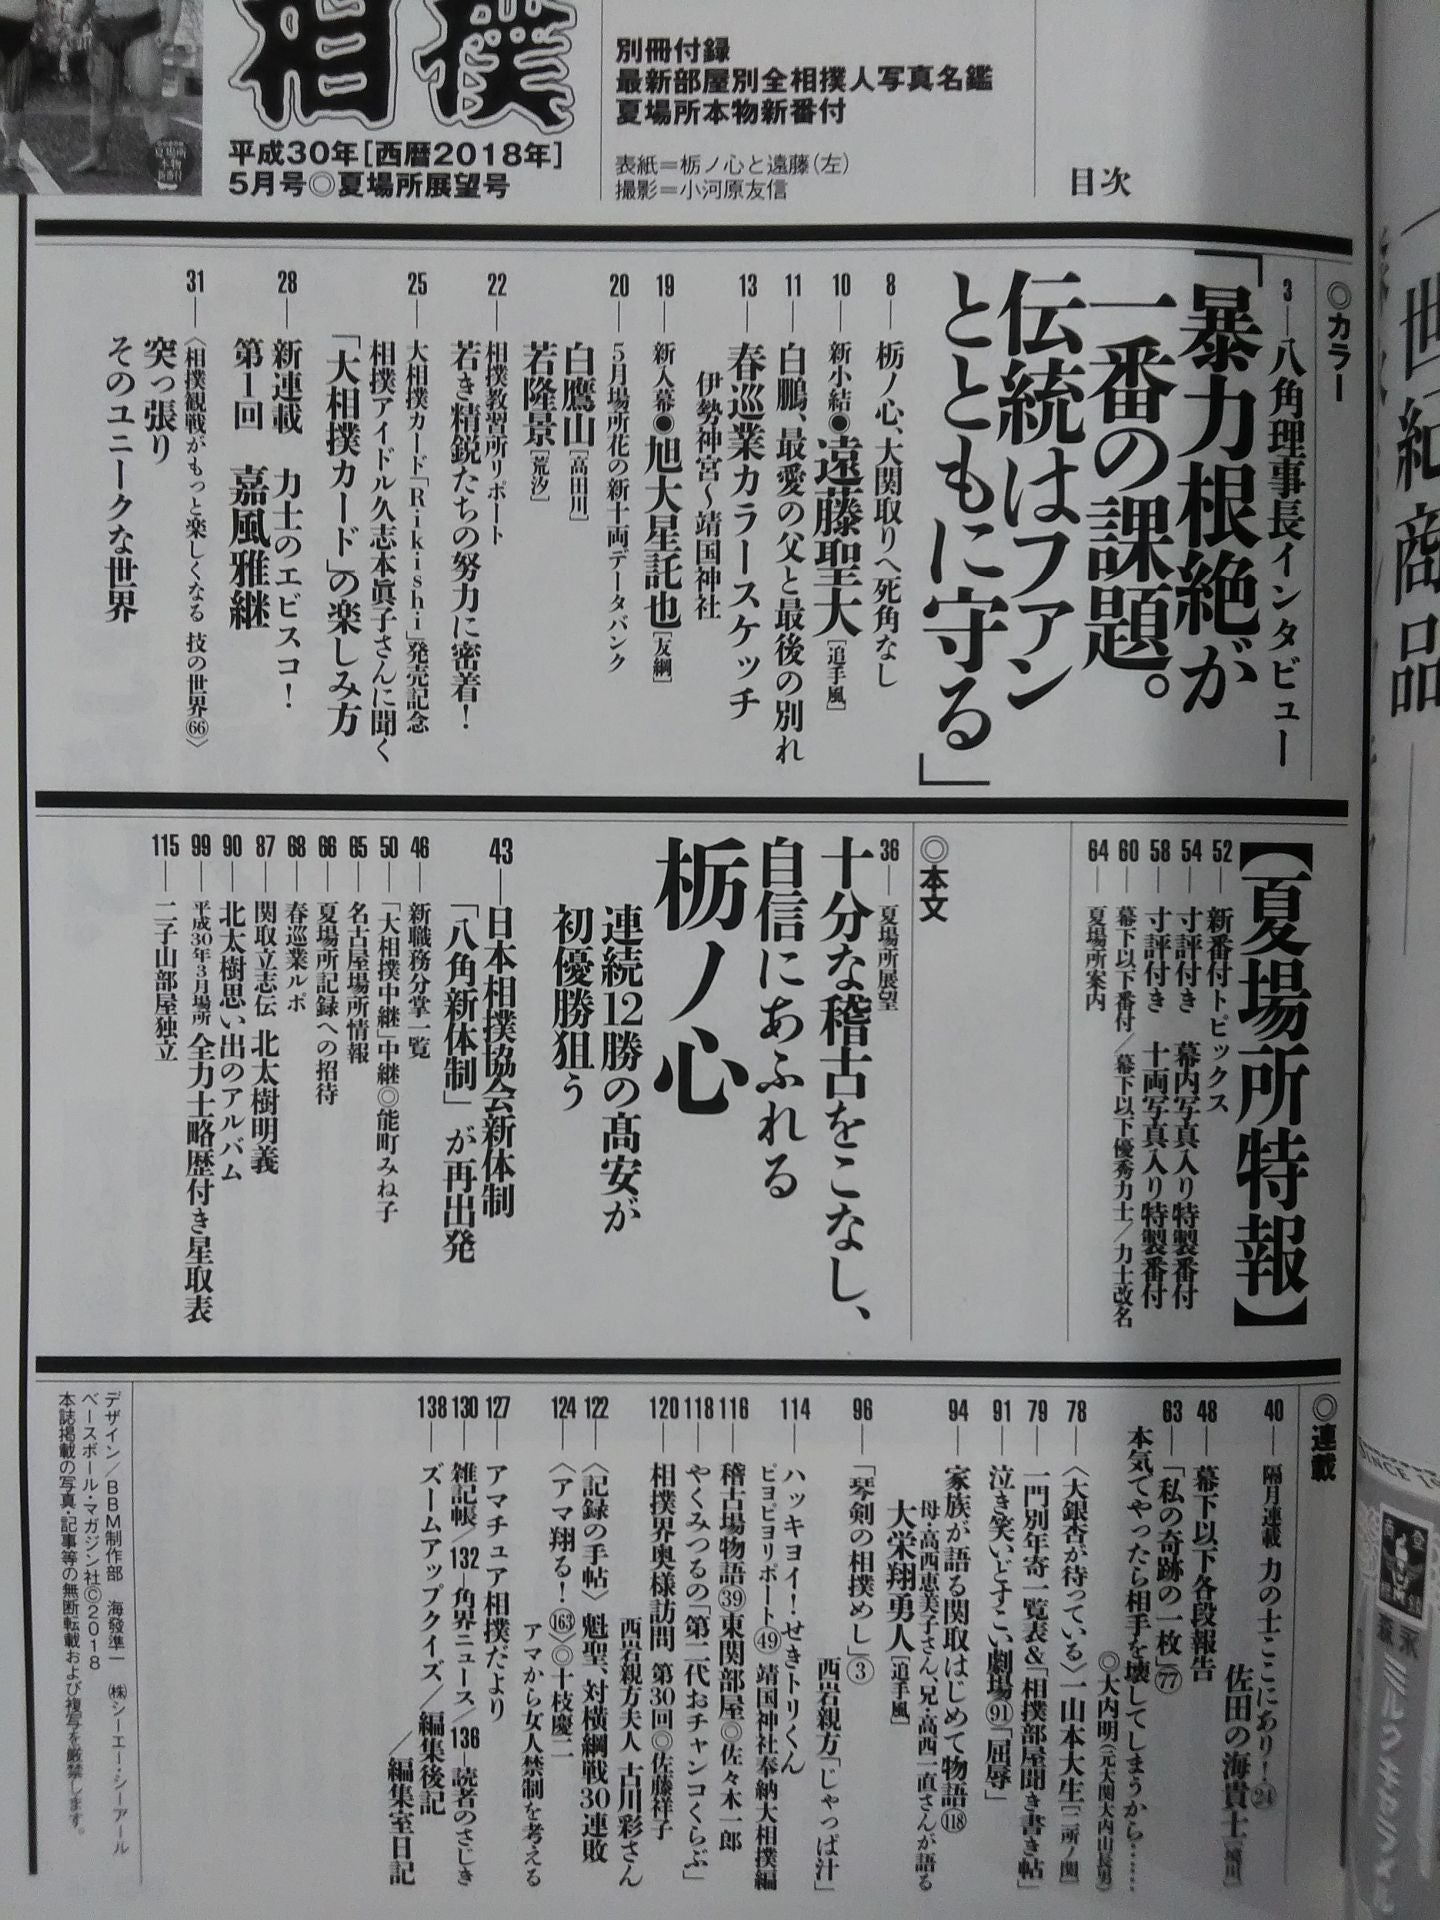 相撲
平成30年[西暦2018年]
5月号◎夏場所展望号
別冊付録
最新部屋別全相撲人写真名鑑
夏場所本物新番付
表紙＝栃ノ心と遠藤(左)
撮影＝小河原友信
目次
◎カラー
3―八角理事長インタビュー
「暴力根絶が
一番の課題。
伝統はファン
とともに守る」
8―栃ノ心、大関取りへ死角なし
10―新小結●遠藤聖大[追手風]
11―白鵬、最愛の父と最後の別れ
13―春巡業カラースケッチ
伊勢神宮～靖国神社
19―新入幕●旭大星託也[友綱]
20―5月場所花の新十両データバンク
白鷹山[高田川]
若隆景[荒汐]
22―相撲教習所リポート
若き精鋭たちの努力に密着！
25―大相撲カード「Rikishi」発売記念
相撲アイドル久志本眞子さんに聞く
「大相撲カード」の楽しみ方
28―新連載 力士のエビスコ！
第1回 嘉風雅継
31―〈相撲観戦がもっと楽しくなる 技の世界㊅〉
突っ張り
そのユニークな世界
【夏場所特報】
52―新番付トピックス
54―寸評付き 幕内写真入り特製番付
58―寸評付き 十両写真入り特製番付
60―幕下以下番付／幕下以下優秀力士／力士改名
64―夏場所案内
◎本文
36―夏場所展望
十分な稽古をこなし、
自信にあふれる
栃ノ心
連続12勝の髙安が
初優勝狙う
43―日本相撲協会新体制
「八角新体制」が再出発
46―新職務分掌一覧
50―「大相撲中継」中継◎能町みね子
65―名古屋場所情報
66―夏場所記録への招待
68―春巡業ルポ
87―関取立志伝 北太樹明義
90―北太樹思い出のアルバム
99―平成30年3月場所 全力士略歴付き星取表
115―二子山部屋独立
◎連載
40―隔月連載 力の士ここにあり！㉔
佐田の海貴士
48―幕下以下各段報告
63―「私の奇跡の一枚」77
本気でやったら相手を壊してしまうから……
◎大内明(元大関大内山長男)
78―〈大銀杏が待っている〉一山本大生[二所ノ関]
79―一門別年寄一覧表&「相撲部屋聞き書き帖」
91―泣き笑いどすこい劇場91「屈辱」
94―家族が語る関取はじめて物語118
母・高西恵美子さん、兄・高西一直さんが語る
大栄翔勇人[追手風]
96―「琴剣の相撲めし」③
西岩親方「じゃっぱ汁」
114―ハッキヨイ！せきトリくん
ピヨピヨリポート㊾ 靖国神社奉納大相撲編
116―稽古場物語㊴東関部屋◎佐々木一郎
118―やくみつるの「第二代おチャンコくらぶ」
120―相撲界奥様訪問 第30回◎佐藤祥子
西岩親方夫人 古川彩さん
122―〈記録の手帖〉魁聖、対横綱戦30連敗
124―〈アマ翔る！163〉◎十枝慶二
アマから女人禁制を考える
127―アマチュア相撲だより
130―雑記帳／132―角界ニュース／136―読者のさじき
138―ズームアップクイズ／編集後記
／編集室日記
デザイン／BBM制作部 海發準一 ㈱シーエー・シーアール
ベースボール・マガジン社©2018
本誌掲載の写真・記事等の無断転載および複写を厳禁します。
世紀商品
SINCE 1
森永
ミルクキャラメル